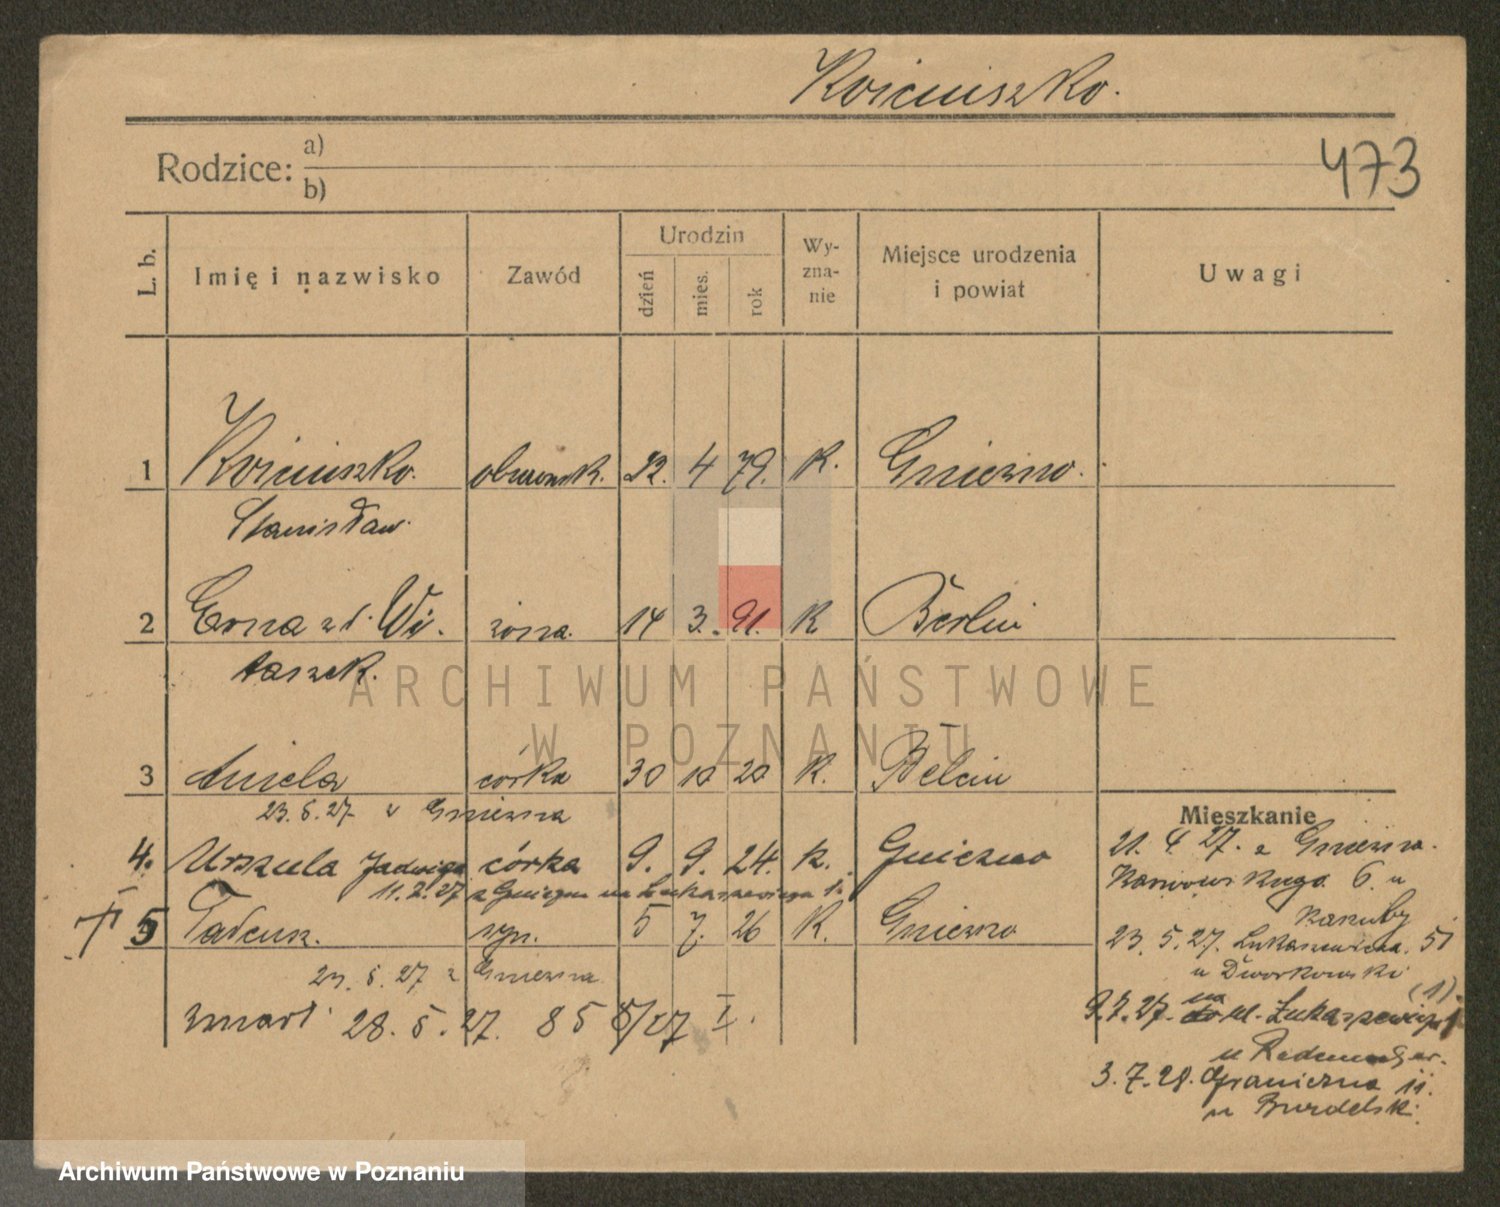 Kościuszko.
473
Rodzice: a)
b)
L. b.
Imię i nazwisko
Zawód
Urodzin
dzień
mies.
rok
Wy-
zna-
nie
Miejsce urodzenia
i powiat
Uwagi
1 Kościuszko. 22. 4 79. K. Gniezno.
Stanisław.
2 Erna zd. Wi- żona. 14 3. 91. K Berlin
taszek.
3 Aniela córka 30 10 20 K. Berlin
23. 5. 27. z Gniezna
Mieszkanie
4. Urszula Jadwiga córka 9. 9. 24. K. Gniezno
21. 4 27. z Gniezna.
11. 2. 27 z Gniezna na Łukaszewicza
6. u
5 Tadeusz. syn. 5 7. 26 K. Gniezno
23. 5. 27. Łukaszewicza. 51
u Dworkowski
23. 5. 27 z Gniezna
zmarł 28. 5. 27. 858/27 I.
9.7.27. na ul. Łukaszewicza
(1).
3. 7. 28. Graniczna 11.
u Burdelski
ARCHIWUM PAŃSTWOWE
W POZNANIU
Archiwum Państwowe w Poznaniu